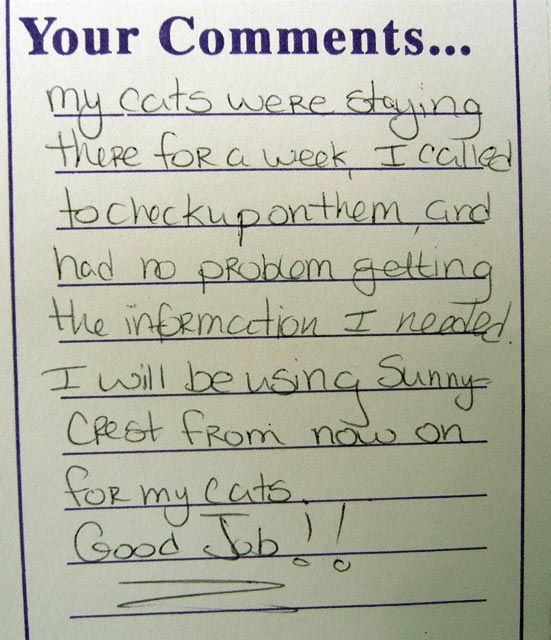 Your Comments...
my cats were staying
there for a week, I called
to check up on them, and
had no problem getting
the information I needed.
I will be using Sunny-
crest from now on
for my cats.
Good Job!!